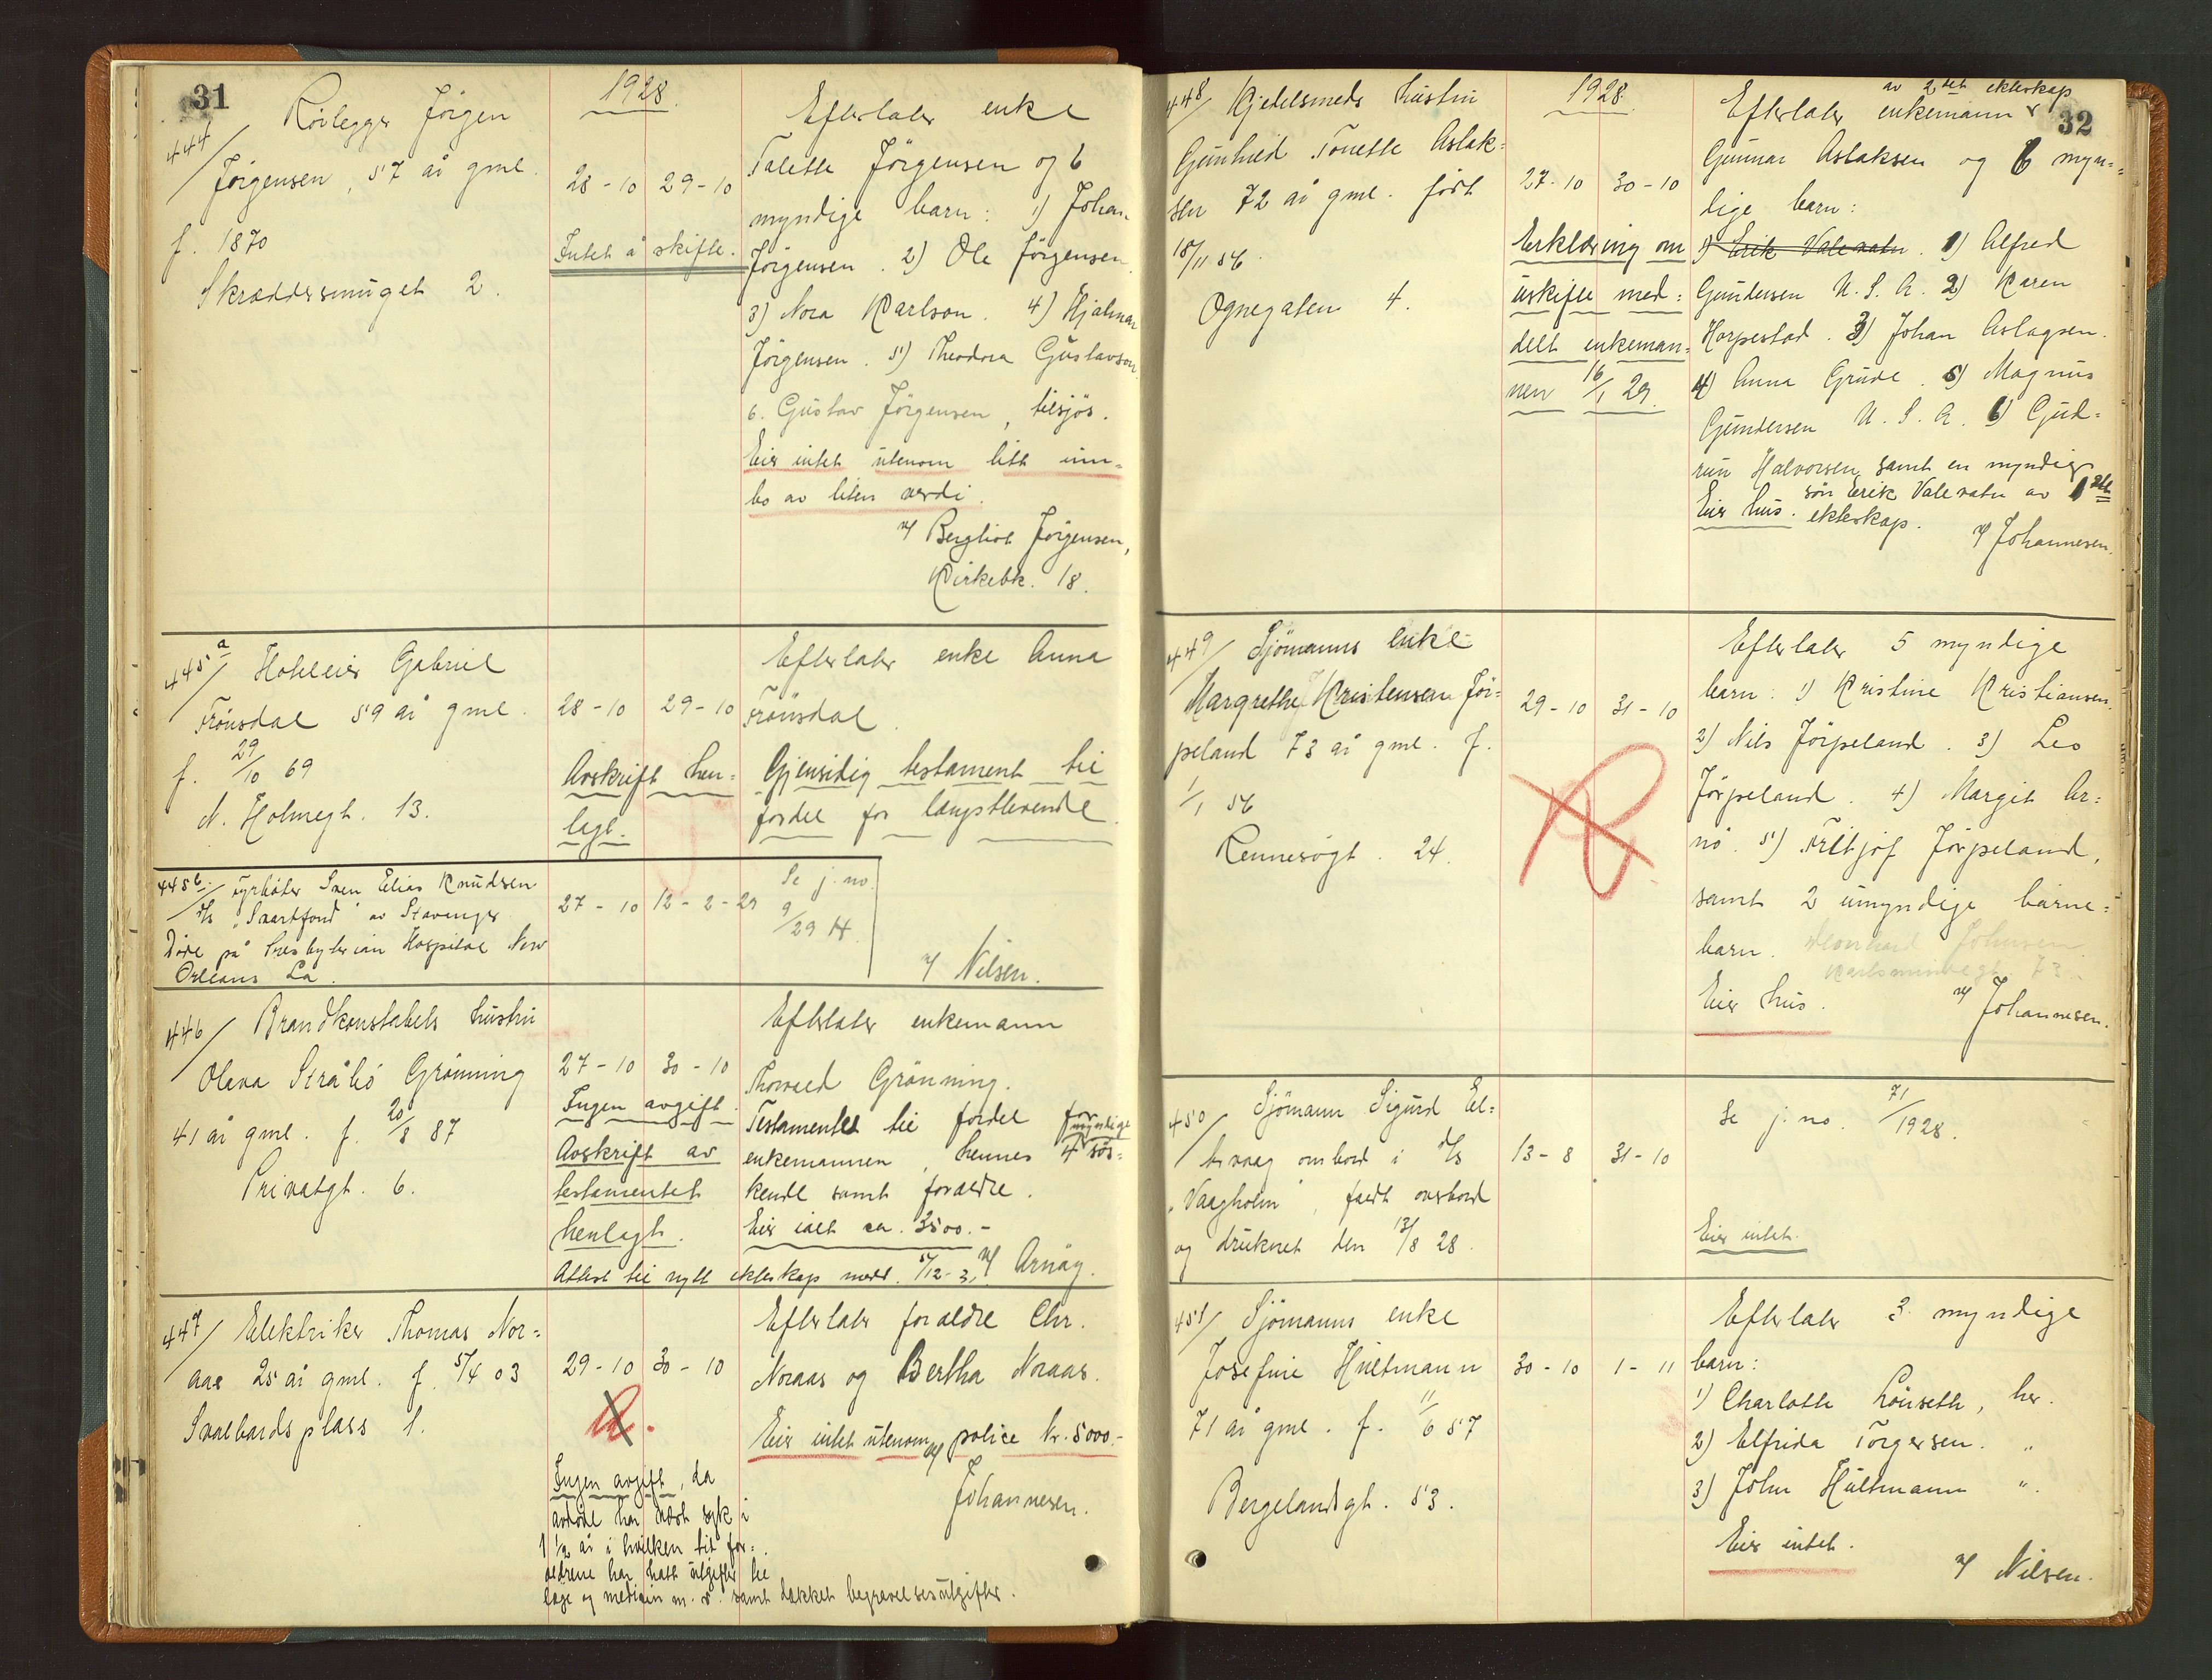 31
1928.
444/ Rörlegger Jörgen
Jörgensen, 57 år gml.
f. 1870
Skreddersmuget 2.
28-10 29-10
Intet å skifte.
Efterlater enke
Talette Jörgensen og 6
myndige barn: 1) Johan
Jörgensen. 2) Ole Jörgensen.
3) Nora Karlson. 4) Hjalmar
Jörgensen. 5) Theodora Gustavson.
6. Gustav Jörgensen, tilsjös.
Eier intet utenom litt inn=
bo av liten verdi.
v/ Bergliot Jörgensen,
Kirkebk. 18.
445a/ Hotelleier Gabriel
Frönsdal 59 år gml.
f. 29/10 69
N. Holmegt. 13.
28-10 29-10
Avskrift hen=
lagt.
Efterlater enke Anna
Frönsdal.
Gjensidig testament til
fordel for lengstlevende.
v/ Nilsen.
445b/ Fyrböter Sven Elias Knudsen
D/s "Svartfond" av Stavanger
Döde på Presbyterian Hospital New
Orleans La.
27-10 12-2-29
Se j. no.
9/29 H.
446/ Brandkonstabels hustru
Olava Stråbö Grönning
41 år gml. f. 20/8 87
Privatgt. 6.
27-10 30-10
Ingen avgift.
Avskrift av
testamentet
henlagt.
Efterlater enkemann
Thorvald Grönning.
Testamentet til fordel for
enkemannen, hennes 4 myndige søs=
kende samt foreldre.
Eier ialt ca. 3500.-
v/ Arnöy.
Attest til nytt ekteskap medd. 5/12-3
447/ Elektriker Thomas Nor=
aas 25 år gml. f. 5/4 03
Svalbards plass 1.
29-10 30-10
Ingen avgift, da
avdöde har vært syk i
1 1/2 år i hvilken tid for=
eldrene har hatt utgifter til
læge og medisin m. v. samt dekket begravelsesutgifter.
Efterlater foreldre Chr.
Noraas og Bertha Noraas.
Eier intet utenom police kr. 5000.-
v/ Johannesen.
32
1928.
448/ Kjedelsmeds hustru
Gunhild Tonette Aslak=
sen 72 år gml. født
18/11 56.
Ognegaten 4.
27-10 30-10
Erklæring om
uskifte med=
delt enkeman=
nen 16/1 29.
av 2det ekteskap
Efterlater enkemann
Gunnar Aslaksen og 6 myn=
dige barn:
1) Erik Valevatn. 1) Alfred
Gundersen U.S.A. 2) Karen
Horpestad. 3) Johan Aslagsen.
4) Anna Grude. 5) Magnus
Gundersen U.S.A. 6) Gud=
run Halvorsen samt en myndig
sön Erik Valevatn av 1ste
ekteskap.
Eier hus.
v/ Johannesen.
449/ Sjömanns enke
Margrethe Kristensen Jör=
peland 73 år gml. f.
1/1 56
Rennesögt. 24.
29-10 31-10
Efterlater 5 myndige
barn: 1) Kristine Kristiansen.
2) Nils Jörpeland. 3) Leo
Jörpeland. 4) Margit Ar=
nö. 5) Fritjof Jörpeland,
samt 2 umyndige barne=
barn. Leonhard Johnsen
Karlsminnegt. 73.
Eier hus.
v/ Johannesen.
450/ Sjömann Sigurd El=
tervaag ombord i D/s
"Vaagholm", faldt overbord
og druknet den 13/8 28.
13-8 31-10
Se j. no. 71/1928.
Eier intet.
451/ Sjömanns enke
Josefine Hultmann
71 år gml. f. 11/6 57
Bergelandsgt. 53.
30-10 1-11
Efterlater 3 myndige
barn:
1) Charlotte Lönseth, her.
2) Elfrida Torgersen. "
3) John Hultmann ".
Eier intet.
v/ Nilsen.